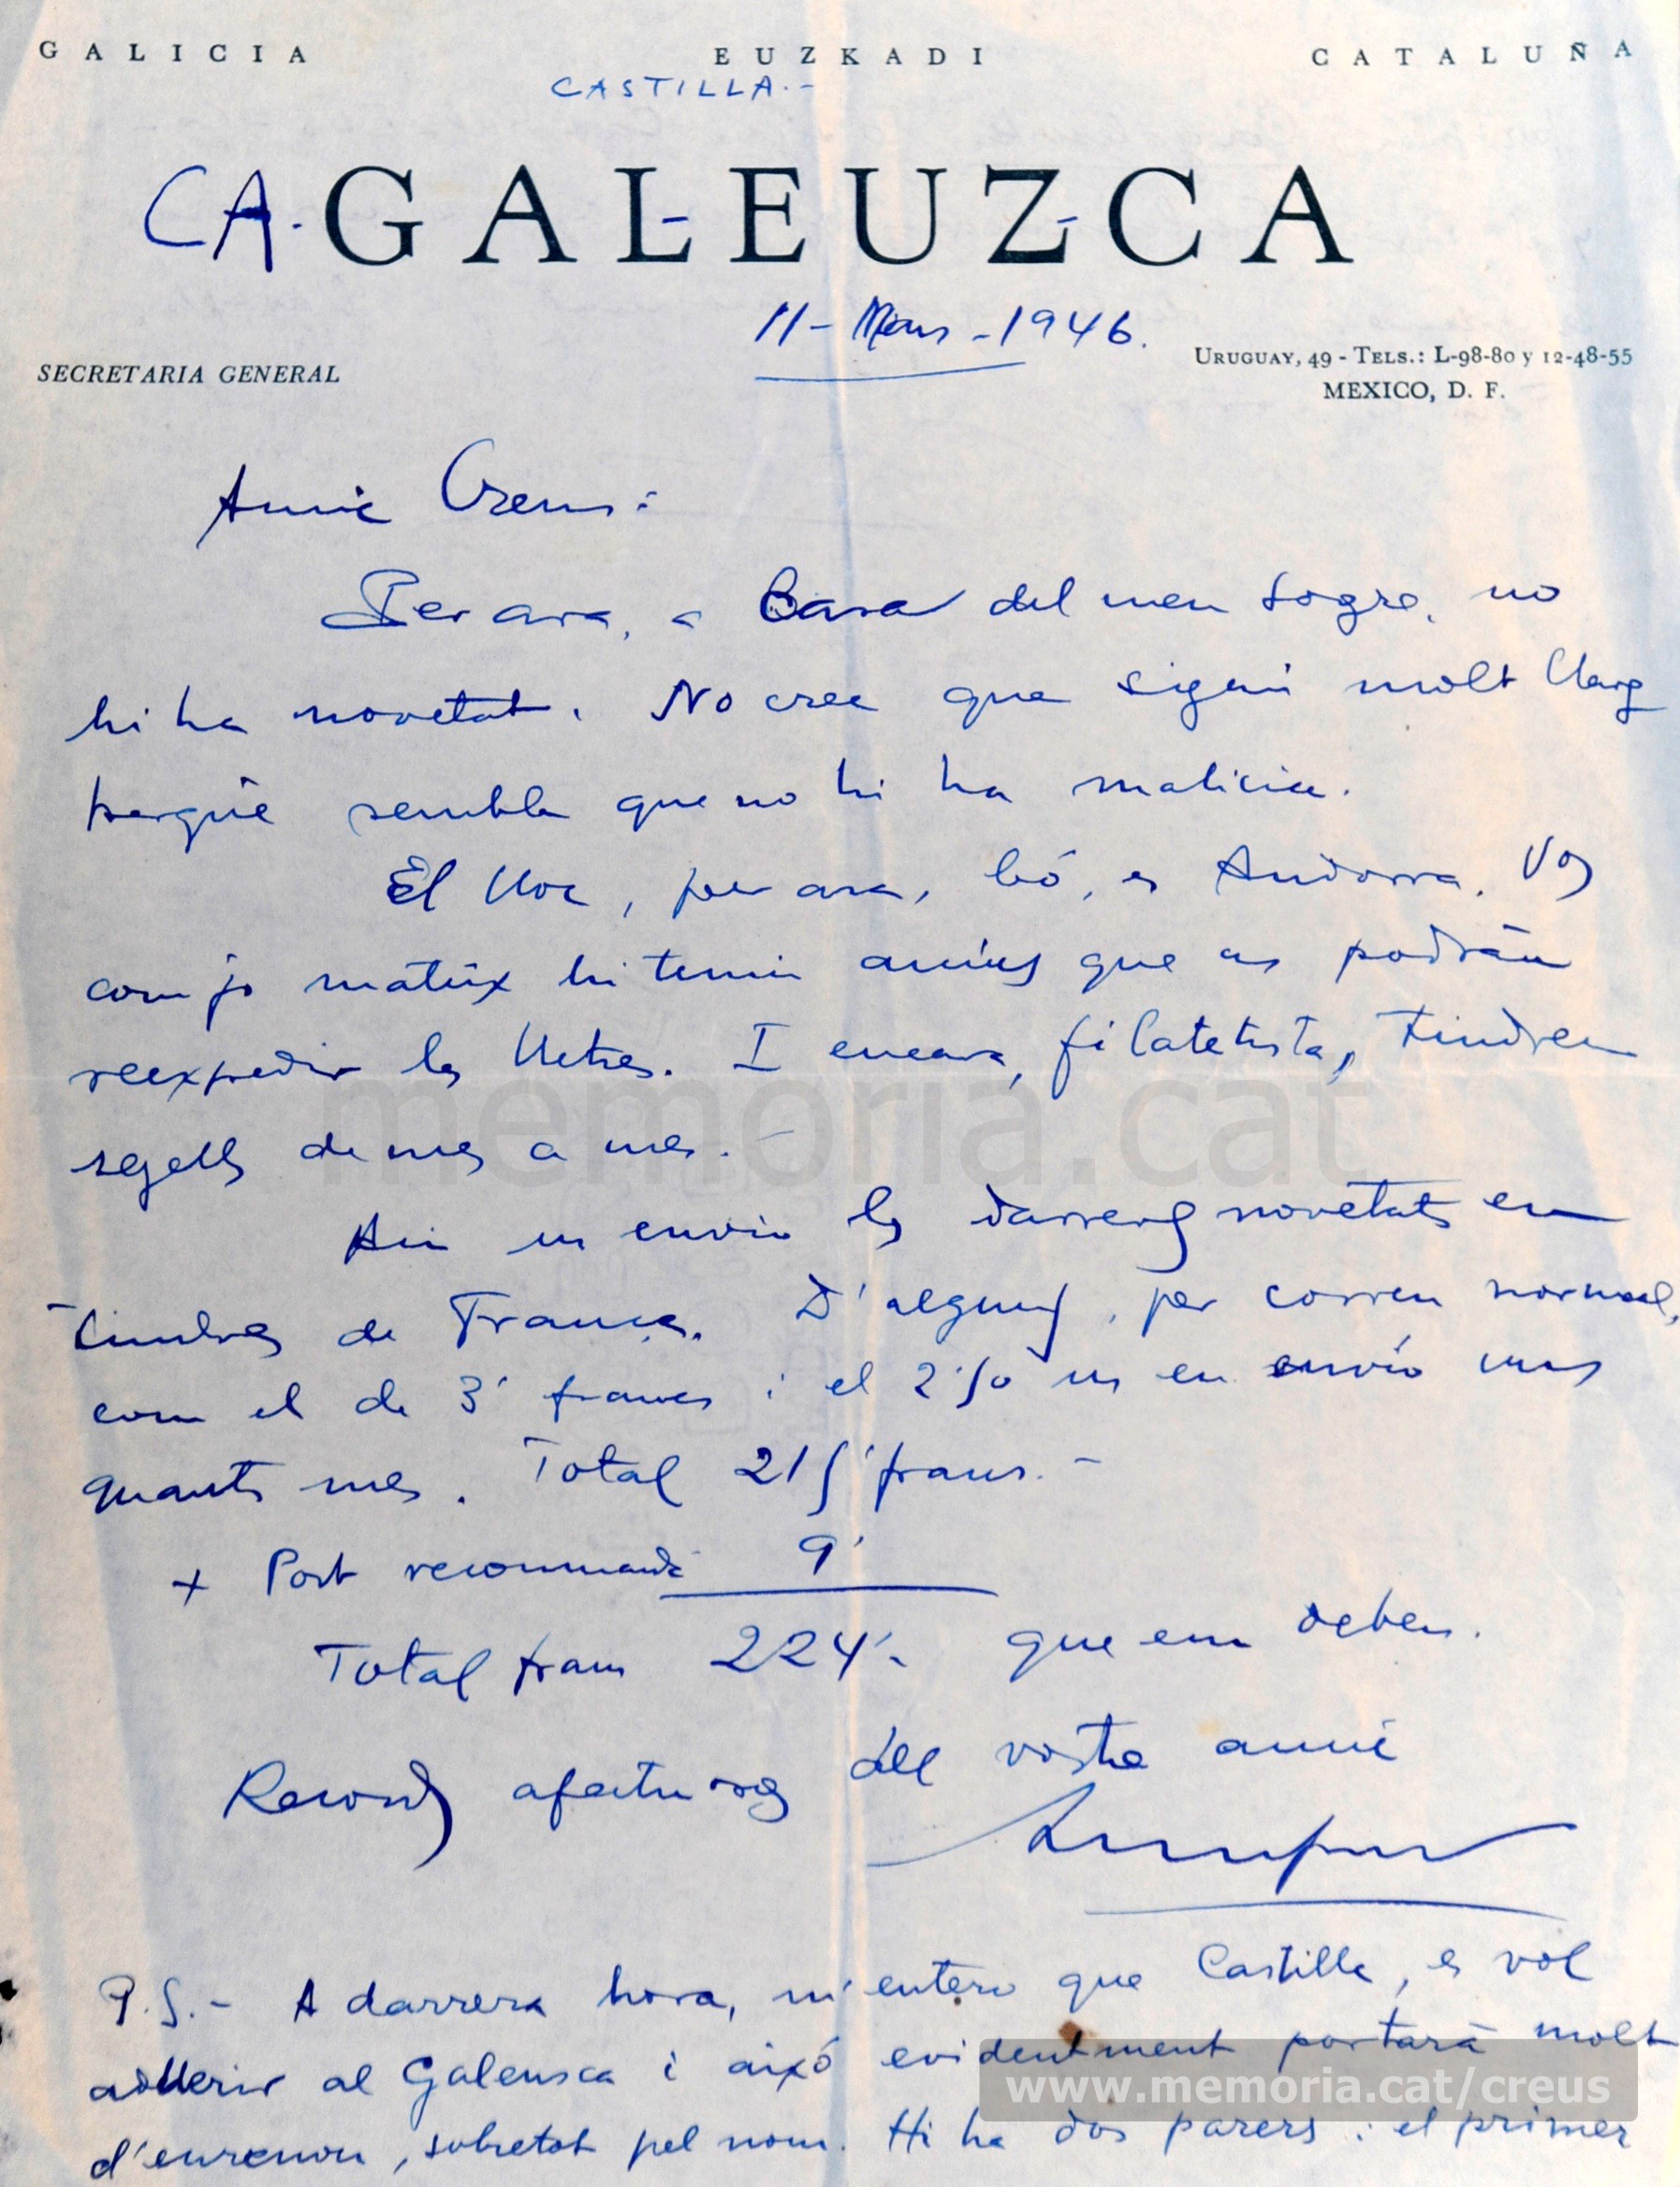 GALICIA EUZKADI CATALUÑA
CASTILLA.-
CA-GAL-EUZ-CA
11 - Mars - 1946.
SECRETARIA GENERAL
URUGUAY, 49 - TELS.: L-98-80 y 12-48-55
MEXICO, D. F.
Amic Creus:
Per ara, a Casa del meu sogre, no
hi ha novetat. No crec que sigui molt llarg
perquè sembla que no hi ha malicia.
El lloc, per ara, bó, es Andorra. Vos
com jo mateix hi tenim amics que ens podrán
reexpedir les lletres. I encara, filatelista, tindrem
segells de mes a mes. -
Aci us envio les darreres novetats en
timbres de França. D'alguns, per correu normal,
com el de 3' francs i el 2'50 us en envio uns
quants mes. Total 215' francs. -
+ Port recommandé 9'
Total francs 224'- que em deben.
Records afectuosos del vostre amic
P.S.- A darrera hora, m'entero que Castilla, es vol
adherir al Galeusca i aixó evidentment portará molt
d'enrenou, sobretot pel nom. Hi ha dos parers: el primer
memoria.cat
www.memoria.cat/creus